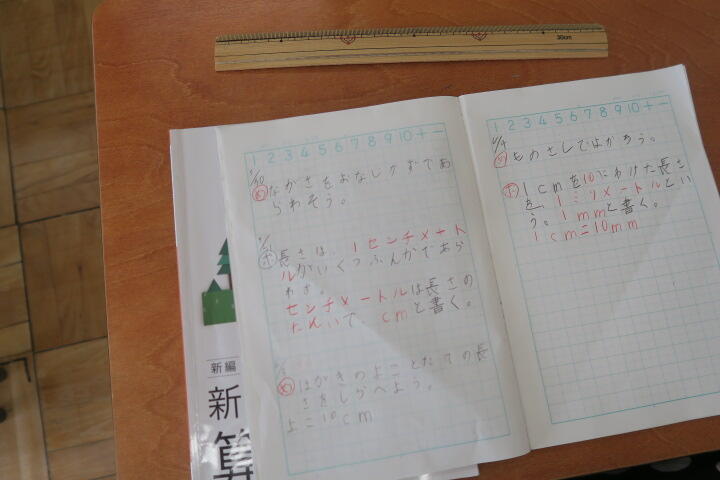 30cm
1 2 3 4 5 6 7 8 9 10 + −
め ながさをおなじかずであ
らわそう。
ま 長さは、1センチメート
ルがいくつぶんかであら
わす。
センチメートルは長さの
たんいで、cmと書く。
め はがきのよことたての長
さをしらべよう。
よこ10cm
1 2 3 4 5 6 7 8 9 10 + −
め ものさしではかろう。
ま 1cmを10にわけた長さ
を、1ミリメートルとい
う。1mmと書く。
1cm=10mm
新編
新
算